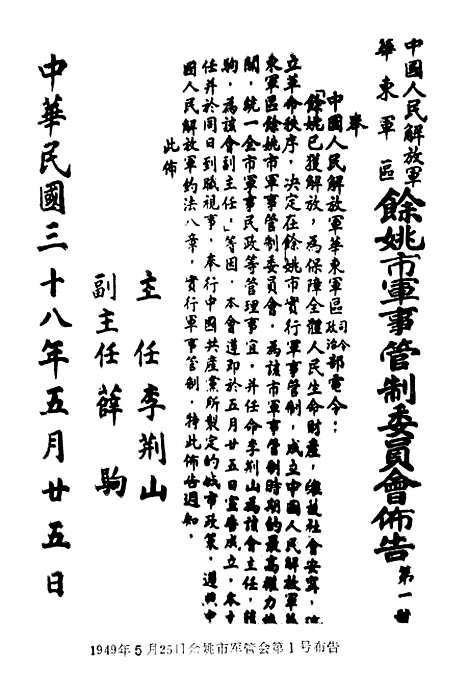 中國人民解放軍
華東軍區
餘姚市軍事管制委員會佈告 第一號
奉
中國人民解放軍華東軍區司令政治部電令：
「餘姚已獲解放，為保障全體人民生命財產，維護社會安寧，
立革命秩序，决定在餘姚市實行軍事管制，成立中國人民解放軍
東軍區餘姚市軍事管制委員會，為該市軍事管制時期的最高權力
關，統一全市軍事民政等管理事宜，并任命李荆山為該會主任，薛
駒，為該會副主任。」等因，本會遵即於五月廿五日宣告成立，本
任并於同日到職視事，奉行中國共產黨所製定的城市政策，遵照中
國人民解放軍約法八章，實行軍事管制，特此佈告週知。
此佈
主任李荆山
副主任薛駒
中華民國三十八年五月廿五日
1949年5月25日余姚市军管会第1号布告